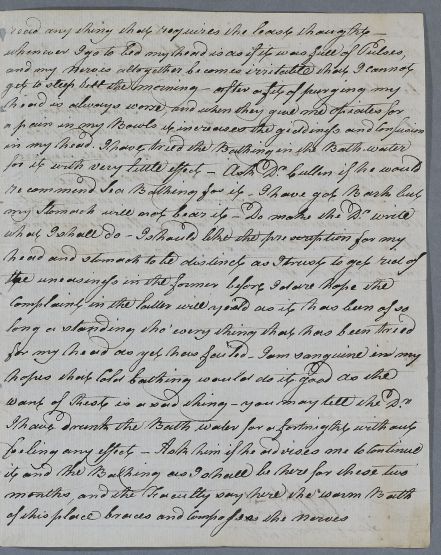 read any thing that requires the least thought –
whenever I go to bed my head is as if it was full of Pulses,
and my Nerves altogether becomes irritable that I cannot
get to sleep till the morning – after a fit of purging my
head is always worse and when they give me opiates for
a pain in my Bowls it increases the giddiness and confusion
in my head. I have tried the Bathing in the Bath water
for it with very little effect – Ask Dr Cullen if he would
recommend Sea Bathing for it – I have got Bark but
my stomach will not bear it – Do make the Dr write
what I shall do – I should like the prescription for my
head and stomach to be distinct as I trust to get rid of
the uneasiness in the former before I dare hope the
Complaint in the latter will yeald as it has been of so
long a standing tho' every thing that has been tried
for my head as yet has failed – I am sanguine in my
hopes that Cold bathing would do it good as the
want of Rest is a sad thing – you may tell the Dr
I have drunk the Bath water for a fortnight without
feeling any effect – Ask him if he advises me to continue
it and the Bathing as I shall be here for these two
months, and the Facuilty say here the warm Bath
of this place braces and composses the nerves